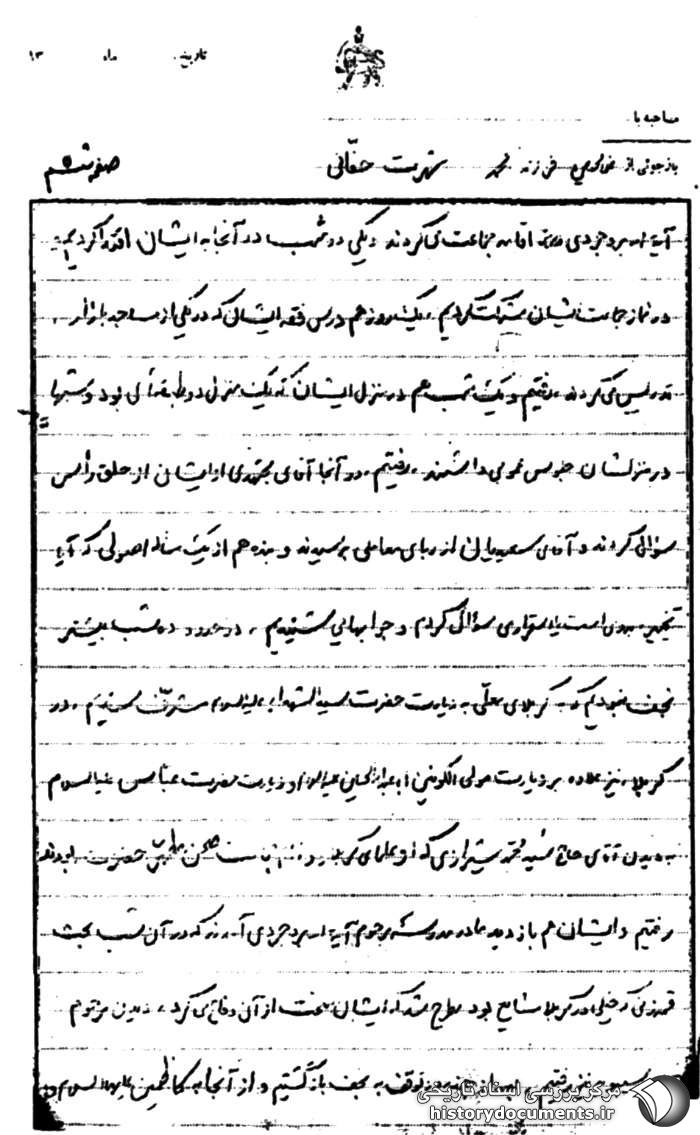 تاریخ ماه ۱۳
مصاحبه با
بازجوئی از فرزند محمد شهرت حقانی صفحه ششم
آیة اله بروجردی اقامه جماعت می‌کردند و یکی دو شب در آنجا به ایشان اقتدا کردیم
در نماز جماعت ایشان شرکت کردیم، یک روز هم درس فقه ایشان که در یکی از مساجد بازار
تدریس می‌کردند، رفتیم و یک شب هم در منزل ایشان که یک منزل دو طبقه‌ای بود و شبها
در منزلشان جلوس عمومی داشتند، رفتیم، در آنجا آقای مجتهدی از ایشان از حلق رأس
سؤال کردند و آقای سعیدیان از ربای معاملی پرسیدند و بنده هم از یک مسأله اصولی که آیا
تخییر بدوی است یا استمراری سؤال کردم و جوابهایی شنیدیم، در حدود ده شب بیشتر
نجف نبودیم که به کربلای معلّی به زیارت حضرت سیدالشهداء علیه‌السلام مشرّف شدیم، در
کربلا نیز علاوه بر زیارت مولی الکونین اباعبدالله الحسین علیه‌السلام و زیارت حضرت عباس علیه‌السلام
به دیدن آقای حاج سید محمد شیرازی که از علمای کربلا و صحن مطهر حضرت بودند
رفتیم و ایشان هم بازدید ما در مدرسه مرحوم آیة اله بروجردی آمدند که در آن شب بحث
قمه‌زنی که خیلی در کربلا شایع بود مطرح شد که ایشان سخت از آن دفاع می‌کرد، دیدن مرحوم
نیز رفتیم، بعد از چند روز توقف به نجف بازگشتیم و از آنجا به کاظمین علیهماالسلام
مرکز بررسی اسناد تاریخی
historydocuments.ir